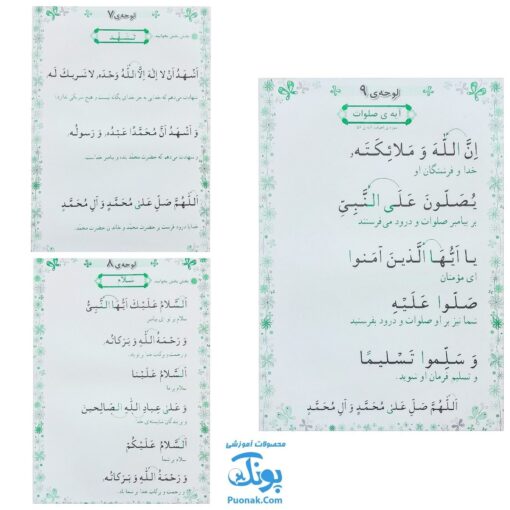 لوحه‌ی ۷
بخش بخش بخوانید
تشهد
اَشهَدُ اَنْ لا اِلٰهَ اِلَّا اللّٰهُ وَحدَهُ، لا شَریكَ لَه
شهادت می‌دهم که خدایی به جز خدای یگانه نیست و هیچ شریکی ندارد
وَ اَشهَدُ اَنَّ مُحَمَّدًا عَبدُهُ، وَ رَسولُه
و شهادت می‌دهم که حضرت محمد بنده و پیامبر خداست
اَللّٰهُمَّ صَلِّ عَلیٰ مُحَمَّدٍ وَ آلِ مُحَمَّدٍ
خدایا درود فرست بر حضرت محمد و خاندان حضرت محمد
لوحه‌ی ۸
بخش بخش بخوانید
سلام
اَلسَّلامُ عَلَیكَ اَیُّهَا النَّبِیُّ
سلام بر تو ای پیامبر
وَ رَحمَةُ اللّٰهِ وَ بَرَکاتُه
و رحمت و برکات خدا بر تو باد
اَلسَّلامُ عَلَینا
سلام بر ما
وَ عَلیٰ عِبادِ اللّٰهِ الصّالِحینَ
و بر بندگان شایسته‌ی خدا
اَلسَّلامُ عَلَیکُمْ
سلام بر شما
وَ رَحمَةُ اللّٰهِ وَ بَرَکاتُه
و رحمت و برکات خدا بر شما باد
لوحه‌ی ۹
آیه ی صلوات
اِنَّ اللّٰهَ وَ مَلائِکَتَه
خدا و فرشتگان او
یُصَلّونَ عَلَی النَّبِیِّ
بر پیامبر صلوات و درود می‌فرستند
یا اَیُّهَا الَّذینَ آمَنوا
ای مؤمنان
صَلّوا عَلَیهِ
شما نیز بر او صلوات و درود بفرستید
وَ سَلِّموا تَسلیمًا
و تسلیم فرمان او شوید.
اَللّٰهُمَّ صَلِّ عَلیٰ مُحَمَّدٍ وَ آلِ مُحَمَّدٍ
محصولات آموزشی
پونک
Puonak.Com